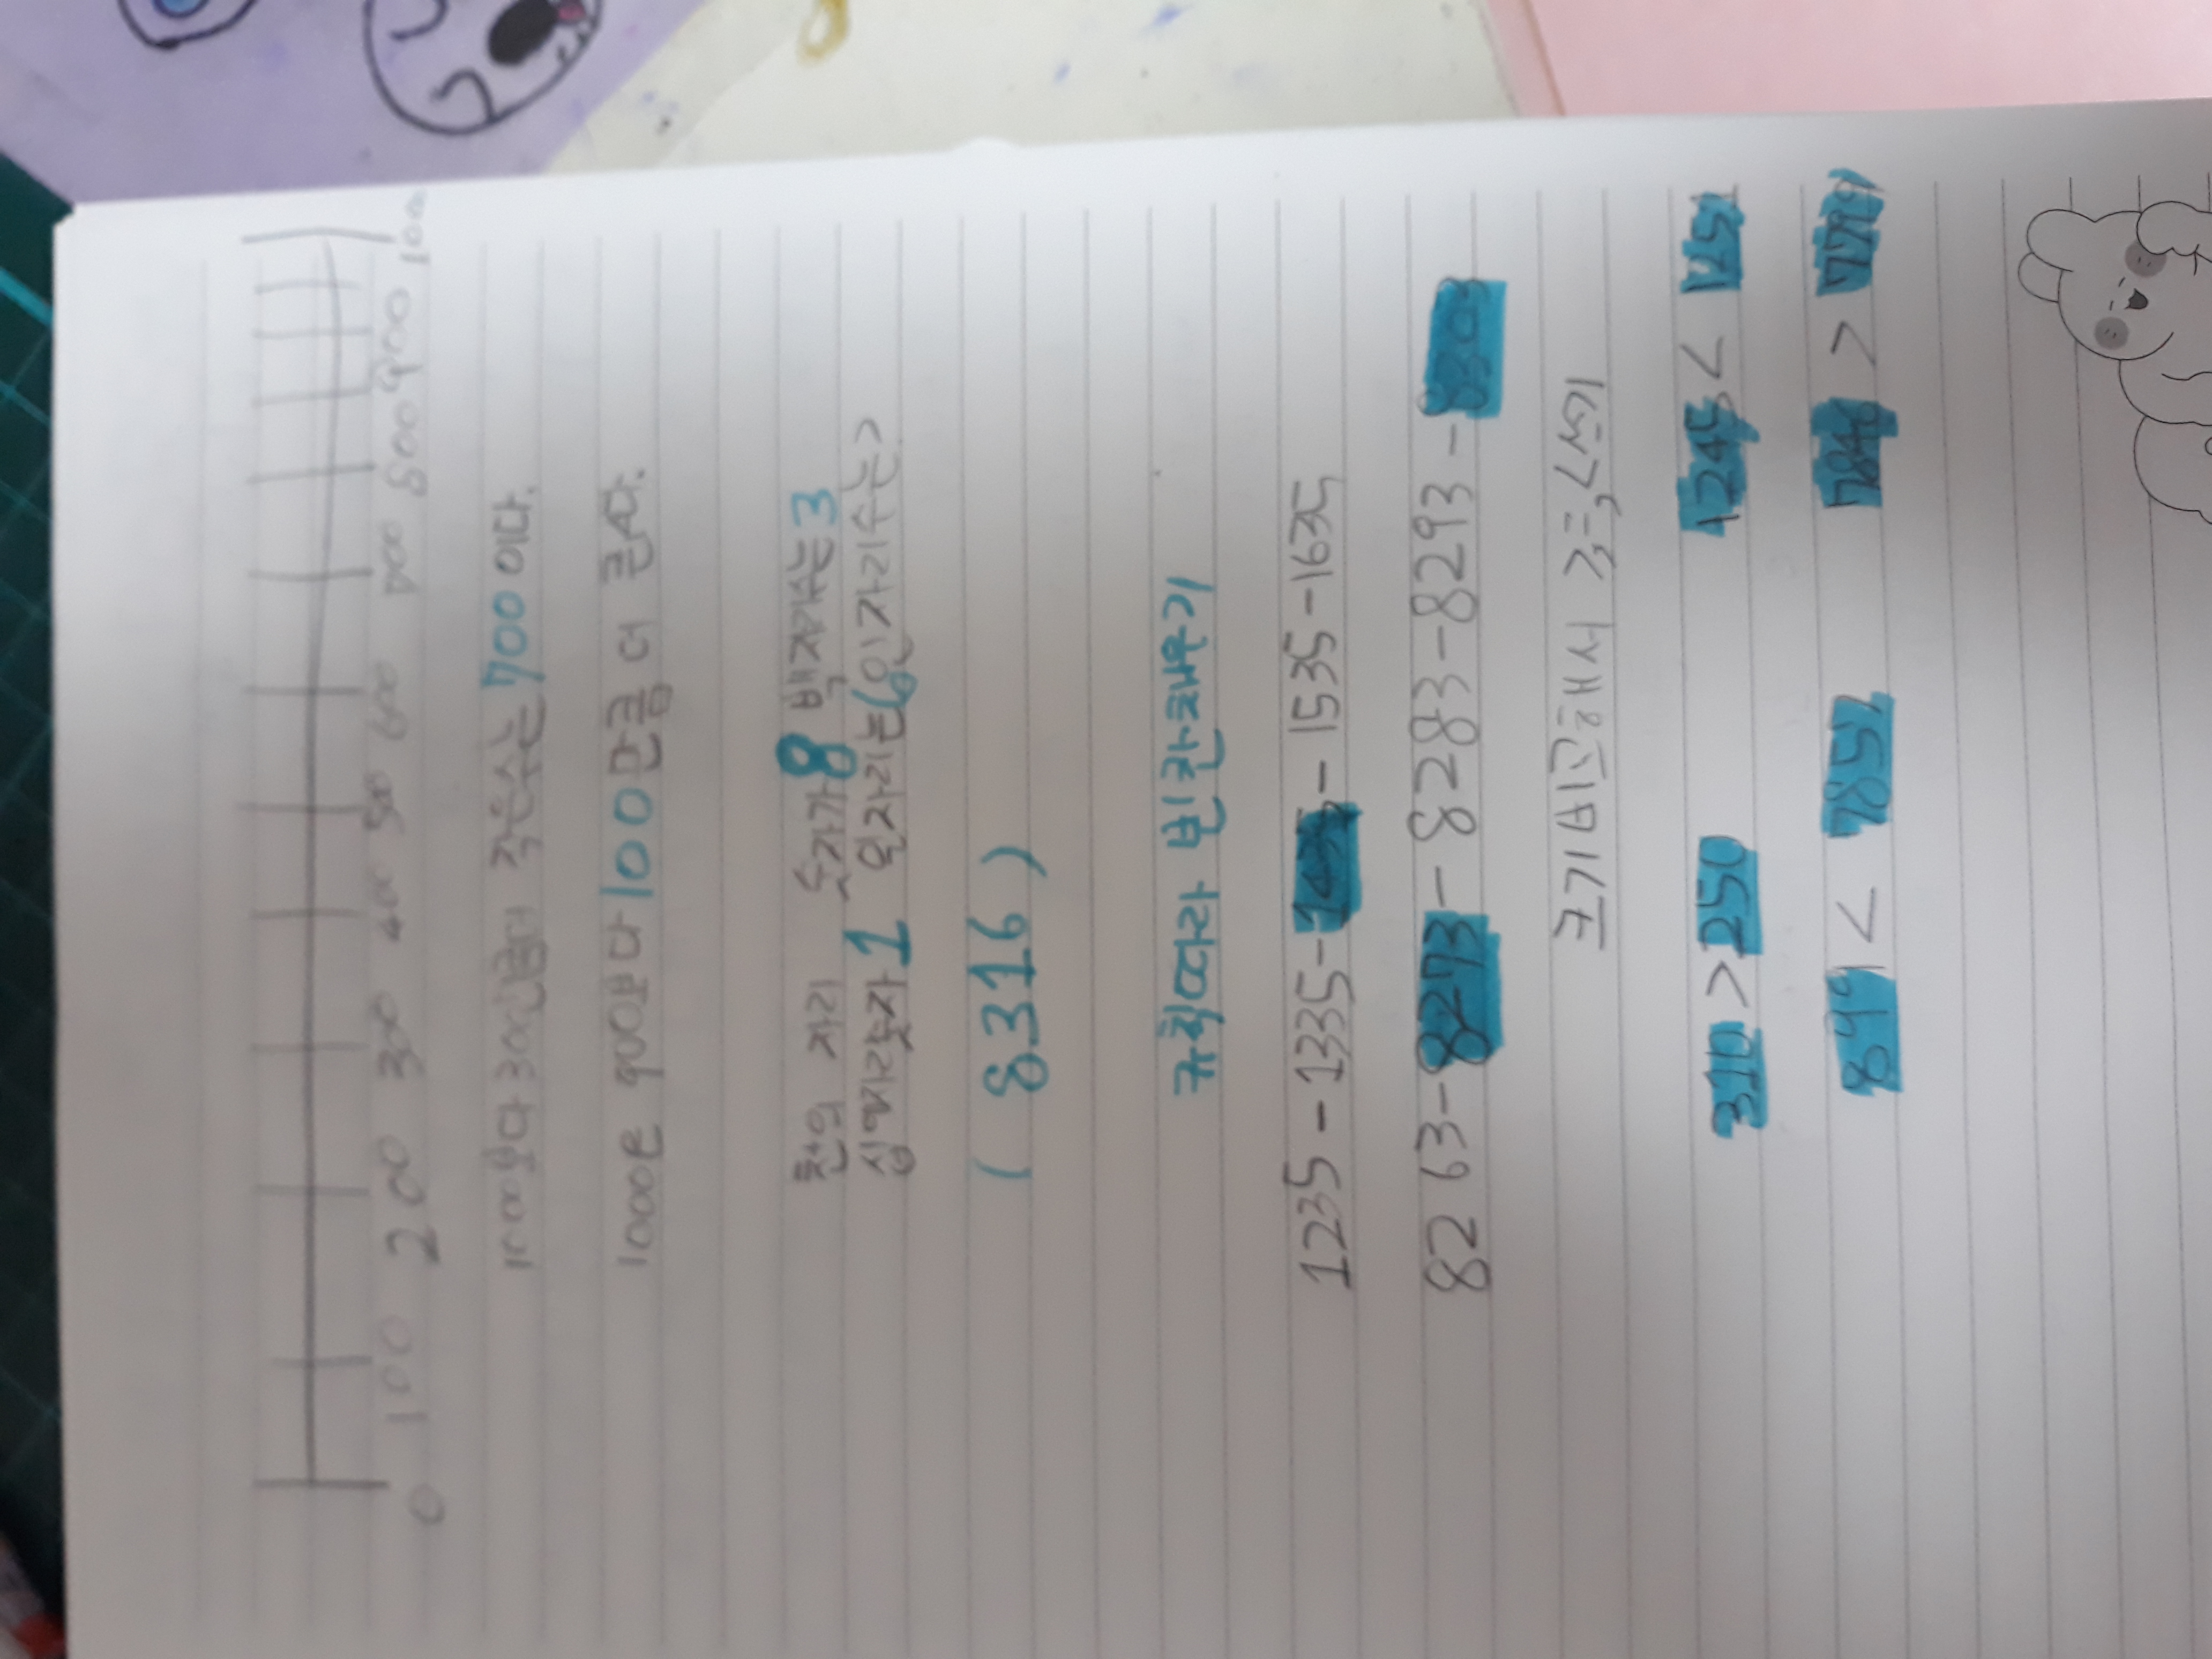 0 100 200 300 400 500 600 700 800 900 1000
1000보다 300만큼더 작은수는 700 이다.
1000은 900보다 100만큼 더 큰수다.
천의 자리 숫자가 8 백자리수는 3
십의자리숫자 1 일자리는 6인자리수는>
( 8316 )
규칙따라 빈칸채우기
1235 - 1335 - 1435 - 1535 - 1635
8263 - 8273 - 8283 - 8293 - 8303
크기비교해서 >,=,<쓰기
310 > 250 1245 <
< 7851 7846 > 7799